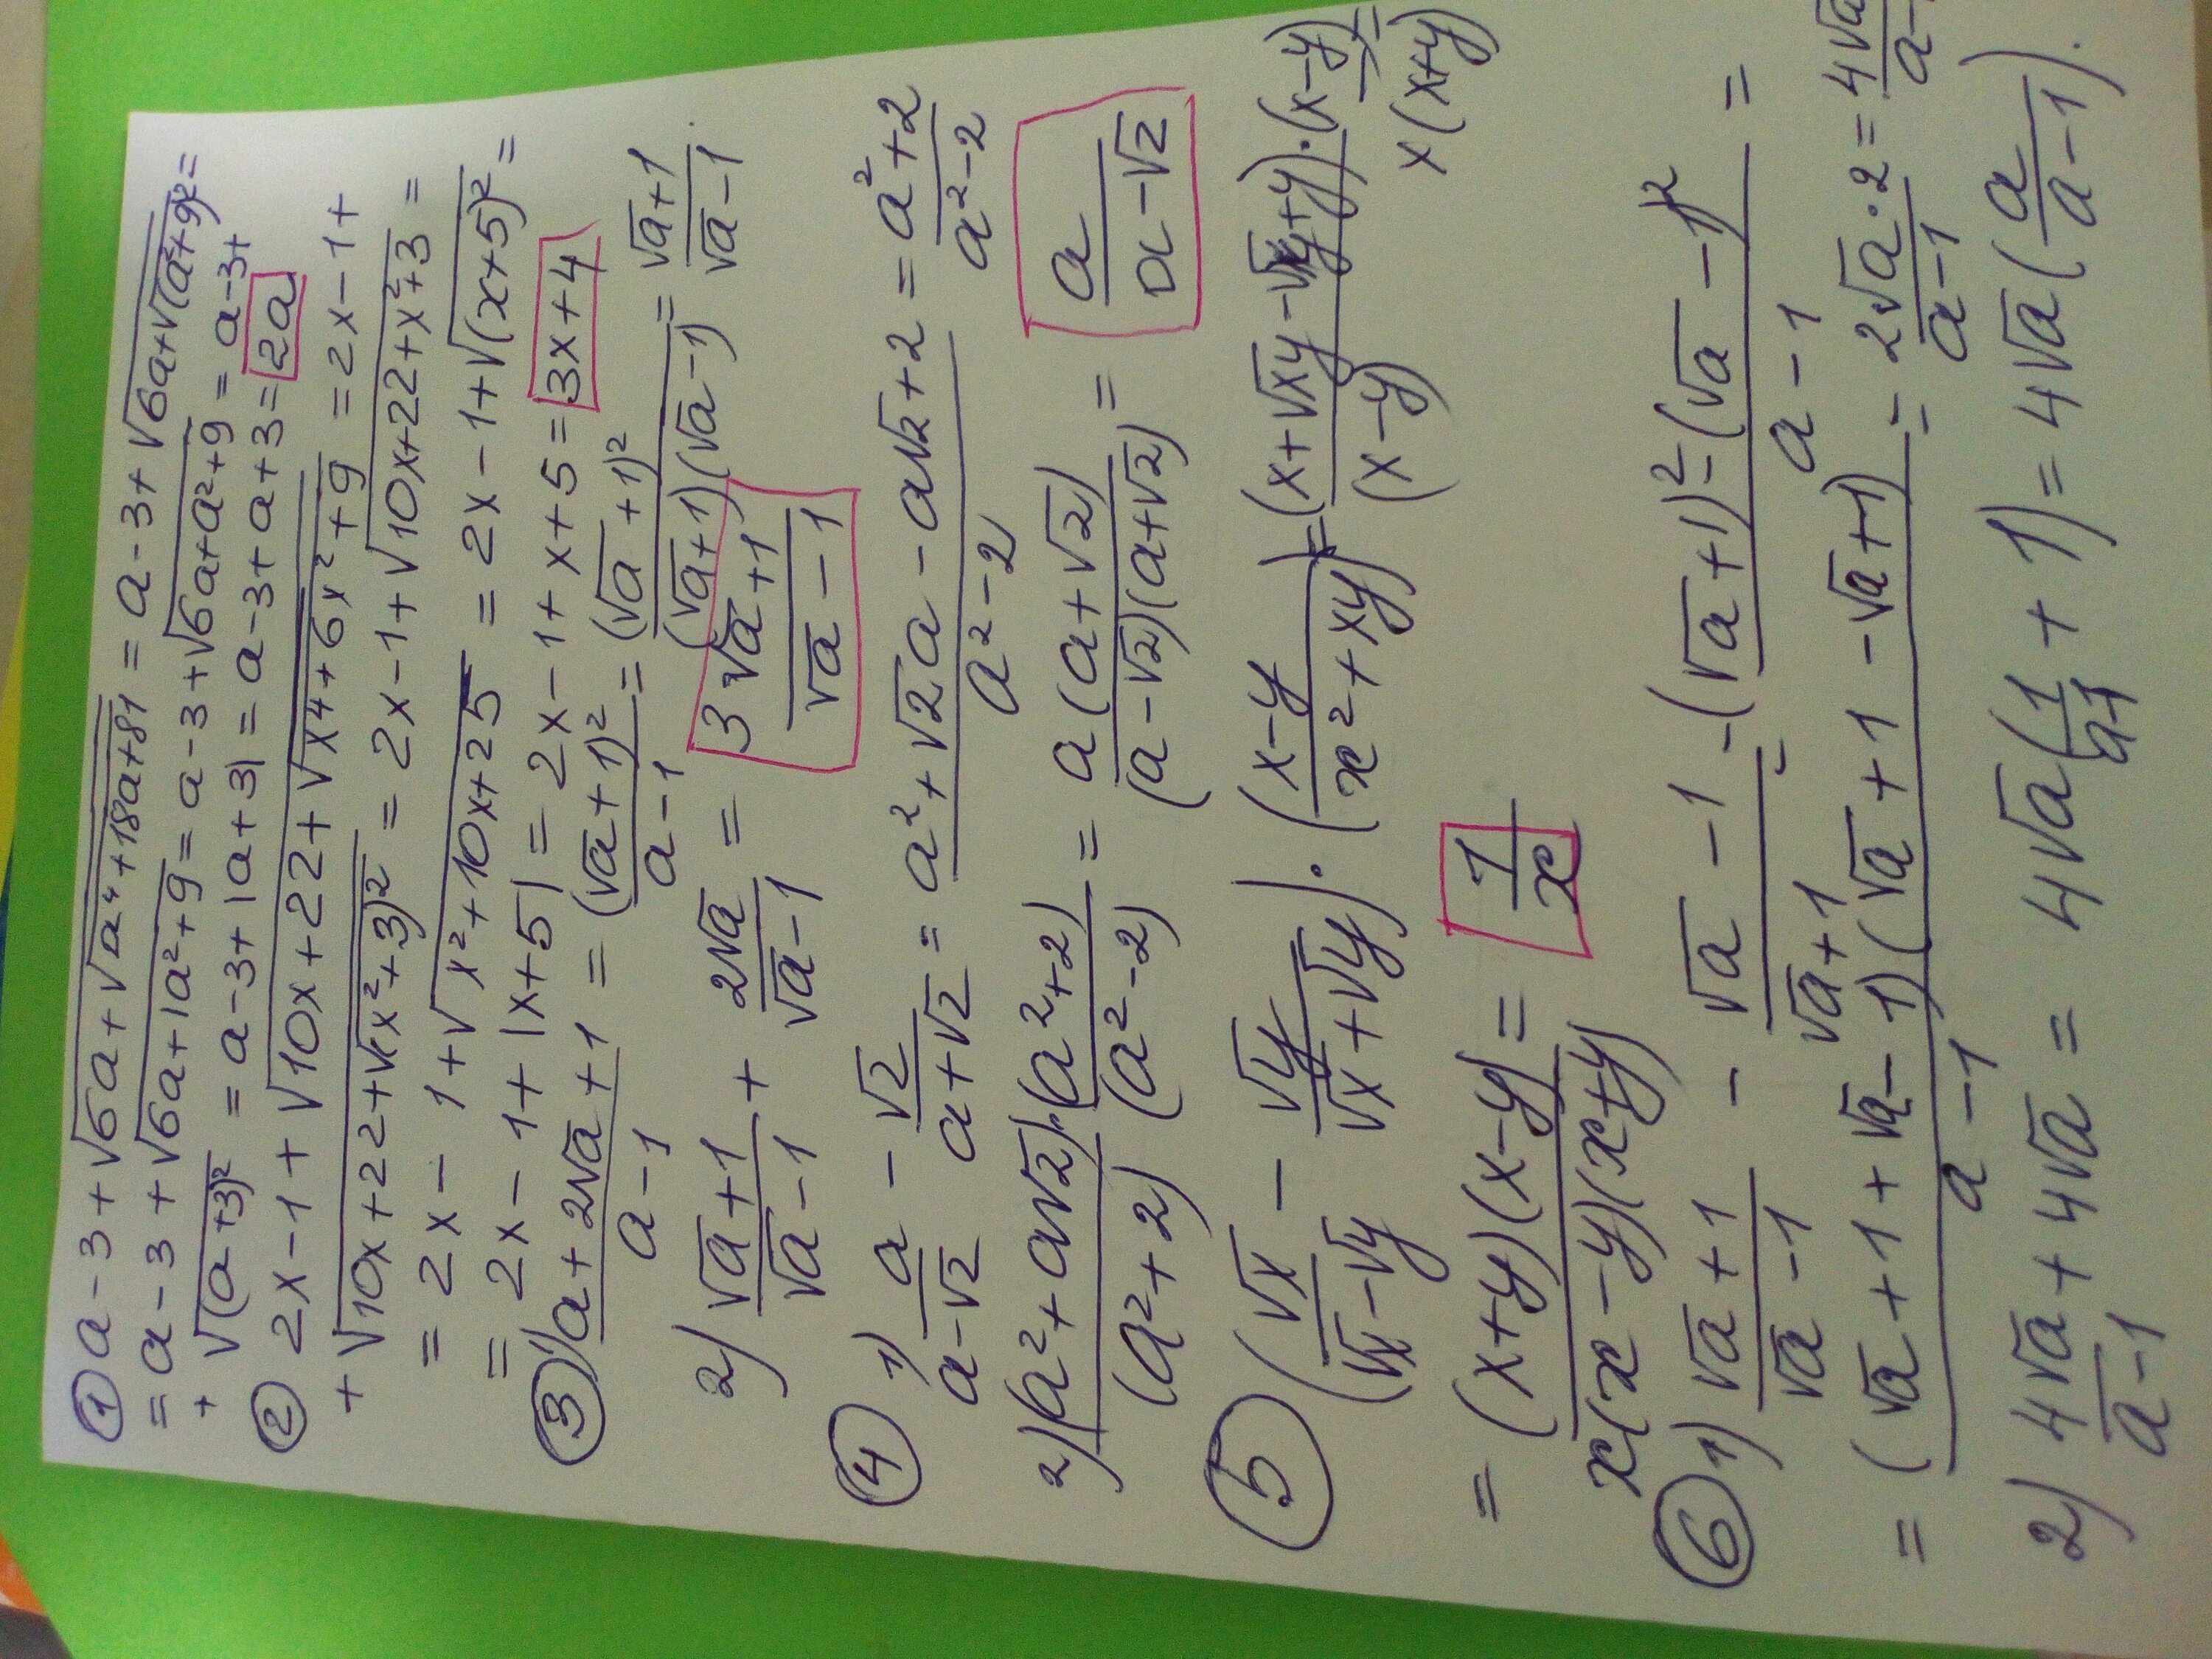 ① a-3+√(6a+√(a⁴+18a+81)) = a-3+√(6a+√(a²+9)²) =
= a-3+√(6a+|a²+9|) = a-3+√(6a+a²+9) = a-3+
+ √(a+3)² = a-3+|a+3| = a-3+a+3 = 2a
② 2x-1+√(10x+22+√(x⁴+6x²+9)) = 2x-1+
+ √(10x+22+√(x²+3)²) = 2x-1+√(10x+22+x²+3) =
= 2x-1+√(x²+10x+25) = 2x-1+√(x+5)² =
= 2x-1+|x+5| = 2x-1+x+5 = 3x+4
③ 1) (a+2√a+1)/(a-1) = (√a+1)²/(a-1) = (√a+1)²/((√a+1)(√a-1)) = (√a+1)/(√a-1).
2) (√a+1)/(√a-1) + 2√a/(√a-1) = (3√a+1)/(√a-1)
④ 1) a/(a-√2) - √2/(a+√2) = (a²+√2a-a√2+2)/(a²-2) = (a²+2)/(a²-2)
2) (a²+a√2)·(a²+2)/((a²+2)(a²-2)) = a(a+√2)/((a-√2)(a+√2)) = a/(a-√2)
⑤ (√x/(√x-√y) - √y/(√x+√y))·((x-y)/(x²+xy)) = (x+√xy-√xy+y)·(x-y)/((x-y) x(x+y)) =
= (x+y)(x-y)/(x(x-y)(x+y)) = 1/x
⑥ 1) (√a+1)/(√a-1) - (√a-1)/(√a+1) = ((√a+1)²-(√a-1)²)/(a-1) =
= (√a+1+√a-1)(√a+1-√a+1)/(a-1) = 2√a·2/(a-1) = 4√a/(a-
2) 4√a/(a-1)+4√a = 4√a(1/(a-1)+1) = 4√a(a/(a-1)).